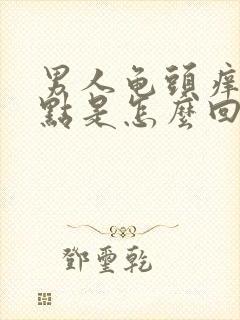 男人龟頭痒
點是怎麼回
鄧璽乾